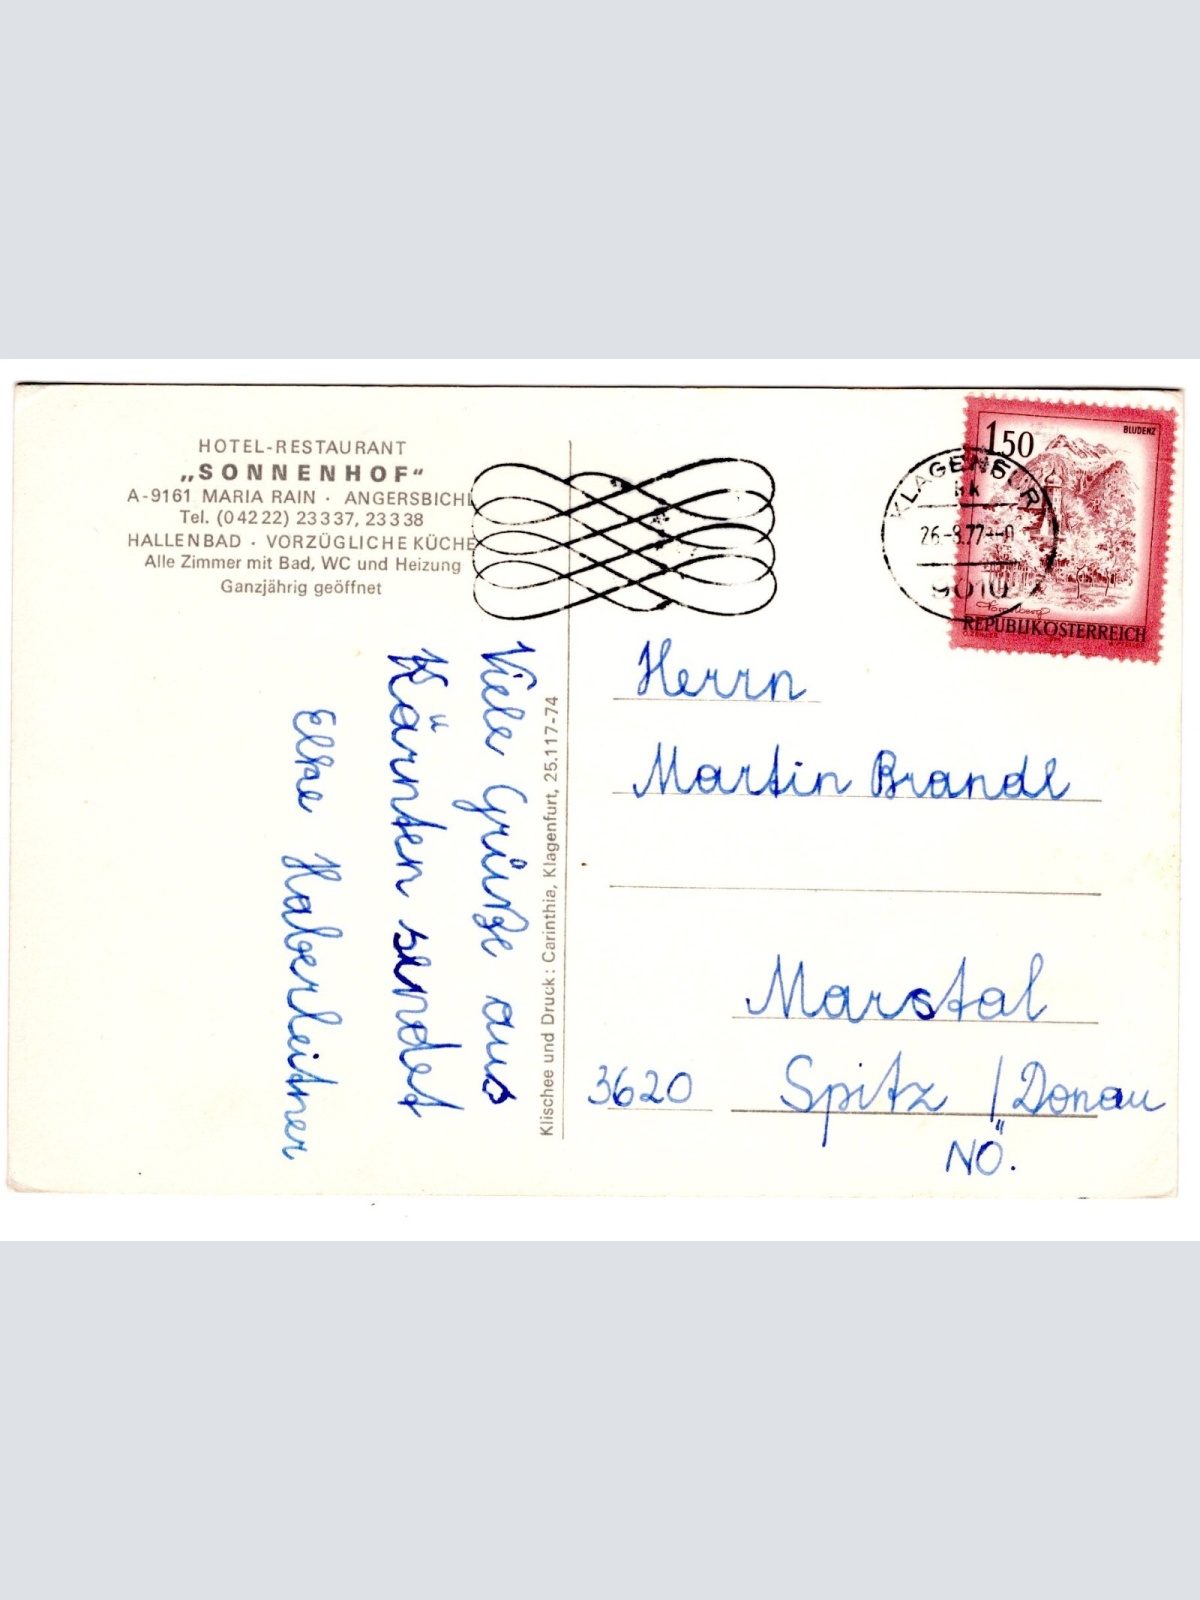 HOTEL-RESTAURANT
„SONNENHOF“
A-9161 MARIA RAIN · ANGERSBICHL
Tel. (04222) 23337, 23338
HALLENBAD · VORZÜGLICHE KÜCHE
Alle Zimmer mit Bad, WC und Heizung
Ganzjährig geöffnet
Viele Grüße aus
Kärnten sendet
Elke Haberleitner
Klischee und Druck: Carinthia, Klagenfurt, 25.117-74
1.50
BLUDENZ
REPUBLIK ÖSTERREICH
KLAGENFURT
26.-8.77--0
9010
Herrn
Martin Brandl
Marstal
3620 Spitz / Donau
NÖ.